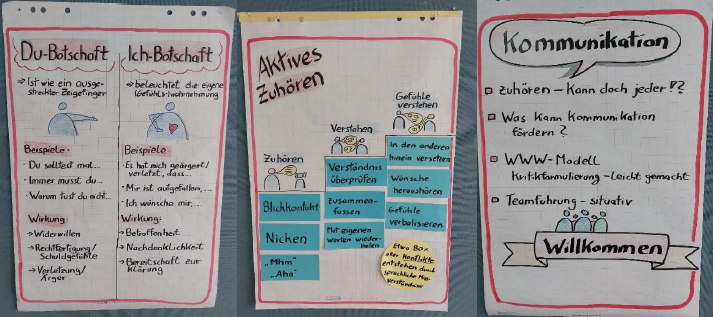 Du-Botschaft
→ Ist wie ein ausge-
streckter Zeigefinger
Beispiele:
· Du solltest mal...
· Immer musst du...
· Warum tust du nicht...
Wirkung:
→ Widerwillen
→ Rechtfertigung/
Schuldgefühle
→ Verletzung/
Ärger
Ich-Botschaft
→ beleuchtet die eigene
Gefühls-Wahrnehmung
Beispiele:
· Es hat mich geärgert/
verletzt, dass...
· Mir ist aufgefallen,...
· Ich wünsche mir,...
Wirkung:
→ Betroffenheit
→ Nachdenklichkeit
→ Bereitschaft zur
Klärung
Aktives
Zuhören
Zuhören
Blickkontakt
Nicken
"Mhm"
"Aha"
Verstehen
Verständnis
überprüfen
Zusammen-
fassen
Mit eigenen
Worten wieder-
holen
Gefühle
verstehen
In den anderen
hinein versetzen
Wünsche
heraushören
Gefühle
verbalisieren
Etwa 80%
aller Konflikte
entstehen durch
sprachliche Miss-
verständnisse
Kommunikation
Zuhören – Kann doch jeder!?
Was kann Kommunikation
fördern?
WWW-Modell
Kritikformulierung – leicht gemacht
Teamführung – situativ
Willkommen